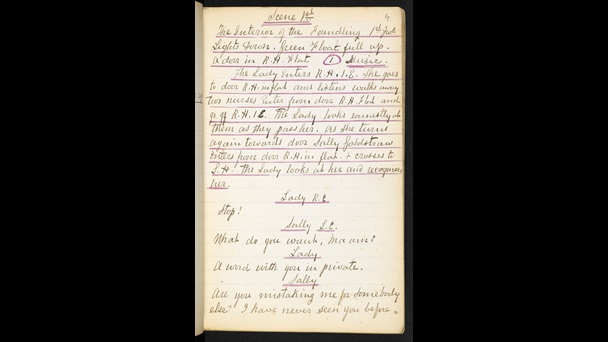 Scene 1st
4
The Interior of the Foundling 1st foot
Lights down. Green Float full up.
a door in R.H. Flat ① Music.
The Lady Enters R.H.1.E. She goes
to door R.H. in flat and listens walks away
two nurses Enter from door R.H. Flat and
go off R.H.1E. The Lady looks earnestly at
them as they pass her. As she turns
again towards door Sally Goldstraw
Enters from door R.H. in flat. + crosses to
L.H. The Lady looks at her and recognises
her.
Lady R.C
Stop!
Sally L.C.
What do you want, Ma'am?
Lady
A word with you in private.
Sally
Are you mistaking me for Somebody
else? I have never seen you before.